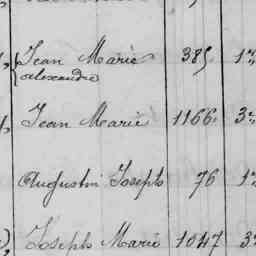 Jean Marie 385 1
Alexandre
Jean Marie 1166 3
Augustin Joseph 76 1
Joseph Marie 1047 3